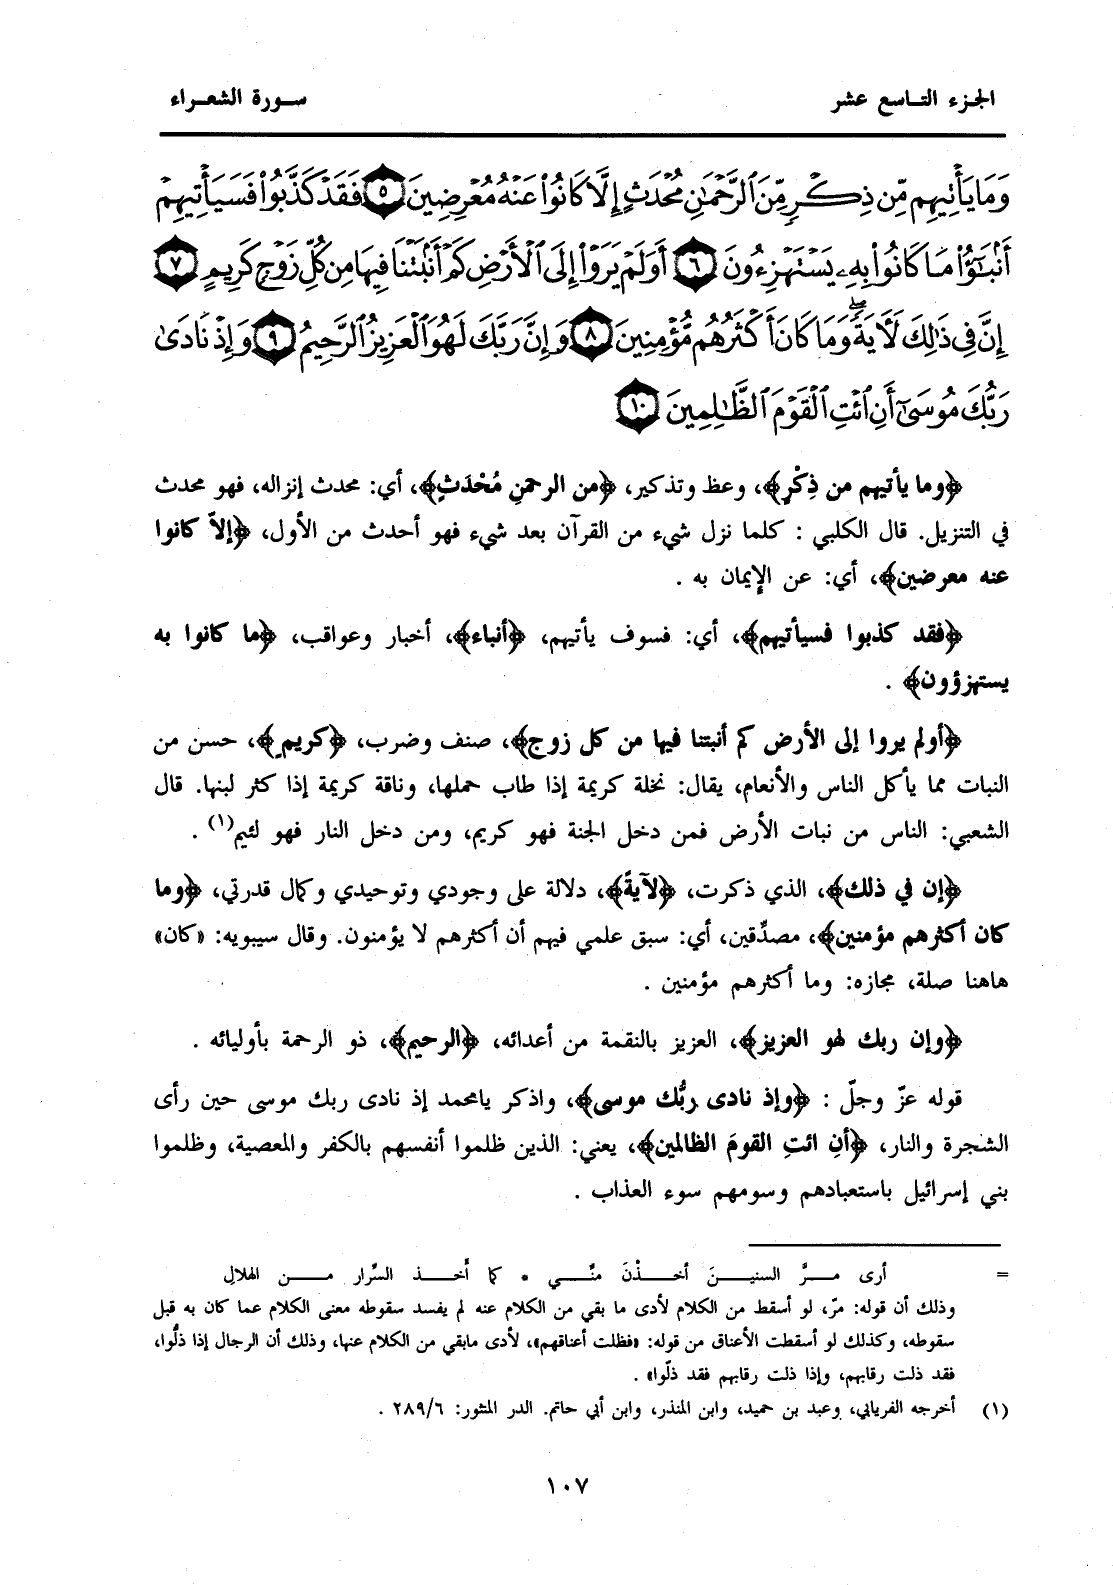 الجزء التاسع عشر
سورة الشعراء
وَمَا يَأْتِيهِم مِّن ذِكْرٍ مِّنَ ٱلرَّحْمَٰنِ مُحْدَثٍ إِلَّا كَانُوا۟ عَنْهُ مُعْرِضِينَ ٥ فَقَدْ كَذَّبُوا۟ فَسَيَأْتِيهِمْ
أَنۢبَٰٓؤُا۟ مَا كَانُوا۟ بِهِۦ يَسْتَهْزِءُونَ ٦ أَوَلَمْ يَرَوْا۟ إِلَى ٱلْأَرْضِ كَمْ أَنۢبَتْنَا فِيهَا مِن كُلِّ زَوْجٍ كَرِيمٍ ٧
إِنَّ فِى ذَٰلِكَ لَـَٔايَةً ۖ وَمَا كَانَ أَكْثَرُهُم مُّؤْمِنِينَ ٨ وَإِنَّ رَبَّكَ لَهُوَ ٱلْعَزِيزُ ٱلرَّحِيمُ ٩ وَإِذْ نَادَىٰ
رَبُّكَ مُوسَىٰٓ أَنِ ٱئْتِ ٱلْقَوْمَ ٱلظَّٰلِمِينَ ١٠
﴿وما يأتيهم من ذِكْرٍ﴾، وعظ وتذكير، ﴿من الرحمنِ مُحْدَثٍ﴾، أي: محدث إنزاله، فهو محدث
في التنزيل. قال الكلبي : كلما نزل شيء من القرآن بعد شيء فهو أحدث من الأول، ﴿إلاّ كانوا
عنه معرضين﴾، أي: عن الإيمان به .
﴿فقد كذبوا فسيأتيهم﴾، أي: فسوف يأتيهم، ﴿أنباء﴾، أخبار وعواقب، ﴿ما كانوا به
يستهزؤون﴾ .
﴿أولم يروا إلى الأرض كم أنبتنا فيها من كل زوج﴾، صنف وضرب، ﴿كريم﴾، حسن من
النبات مما يأكل الناس والأنعام، يقال: نخلة كريمة إذا طاب حملها، وناقة كريمة إذا كثر لبنها. قال
الشعبي: الناس من نبات الأرض فمن دخل الجنة فهو كريم، ومن دخل النار فهو لئيم(١) .
﴿إن في ذلك﴾، الذي ذكرت، ﴿لآيةً﴾، دلالة على وجودي وتوحيدي وكمال قدرتي، ﴿وما
كان أكثرهم مؤمنين﴾، مصدِّقين، أي: سبق علمي فيهم أن أكثرهم لا يؤمنون. وقال سيبويه: «كان»
هاهنا صلة، مجازه: وما أكثرهم مؤمنين .
﴿وإن ربك لهو العزيز﴾، العزيز بالنقمة من أعدائه، ﴿الرحيم﴾، ذو الرحمة بأوليائه .
قوله عزّ وجلّ : ﴿وإذ نادى ربُّك موسى﴾، واذكر يامحمد إذ نادى ربك موسى حين رأى
الشجرة والنار، ﴿أنِ ائتِ القومَ الظالمين﴾، يعني: الذين ظلموا أنفسهم بالكفر والمعصية، وظلموا
بني إسرائيل باستعبادهم وسومهم سوء العذاب .
= أرى مـــرَّ السنيـــنَ أخـــذْنَ منِّـــي * كما أخـــذ السِّرار مـــن الهلالِ
وذلك أن قوله: مرّ، لو أسقط من الكلام لأدى ما بقي من الكلام عنه لم يفسد سقوطه معنى الكلام عما كان به قبل
سقوطه، وكذلك لو أسقطت الأعناق من قوله: «فظلت أعناقهم»، لأدى مابقي من الكلام عنها، وذلك أن الرجال إذا ذلُّوا،
فقد ذلت رقابهم، وإذا ذلت رقابهم فقد ذلّوا» .
(١) أخرجه الفريابي، وعبد بن حميد، وابن المنذر، وابن أبي حاتم. الدر المنثور: ٢٨٩/٦ .
١٠٧